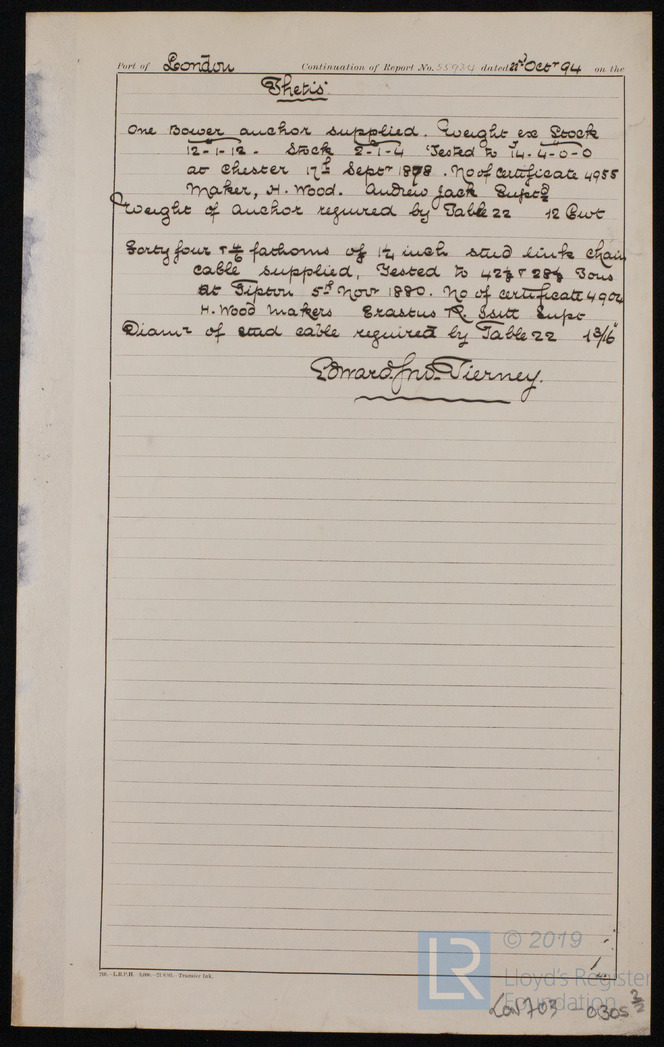 Port of London Continuation of Report No. 55934 dated 22nd Octr 94 on the
"Thetis"
One Bower anchor supplied. Weight ex Stock
12-1-12. Stock 2-1-4 Tested to 14-4-0-0
at Chester 17th Septr 1878. No of certificate 4955
Maker, H. Wood. Andrew Jack Supt
Weight of anchor required by Table 22 12 Cwt
Forty four fathoms of 1¼ inch stud link chain
cable supplied, Tested to Tons
at Tipton 5th Novr 1880. No of certificate 4904
H. Wood Makers Erastus R. Issitt Supt
Diamr of stud cable required by Table 22 1 3/16"
Edward Jno. Tierney.
L.R.P.H. Transfer Ink.
LR © 2019
Lloyd's Register
Foundation
LON703-0305 2/2